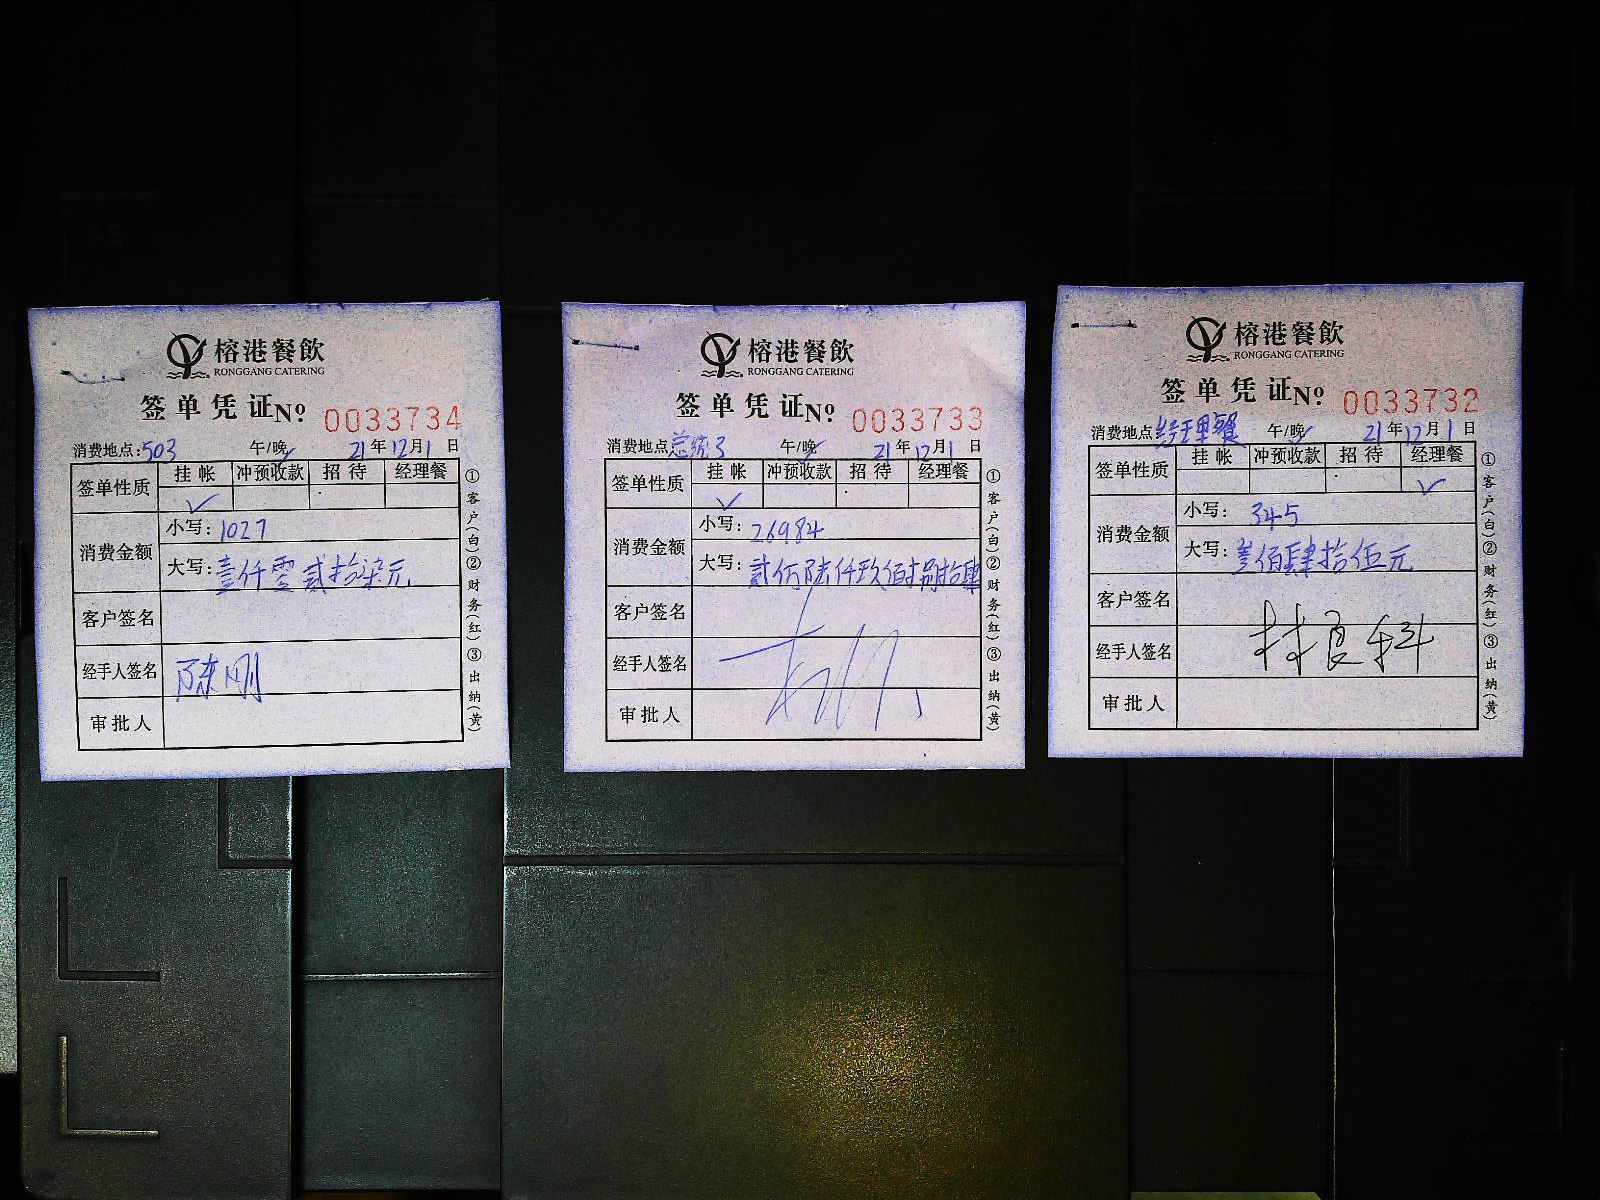 榕港餐飲
RONGGANG CATERING
签单凭证No 0033734
消费地点:503 午/晚 21年12月1日
签单性质 挂帐 冲预收款 招待 经理餐
✓
消费金额 小写:1027
大写:壹仟零贰拾柒元
客户签名
经手人签名 陈刚
审批人
①客户(白)②财务(红)③出纳(黄)
榕港餐飲
RONGGANG CATERING
签单凭证No 0033733
消费地点总统3 午/晚 21年12月1日
签单性质 挂帐 冲预收款 招待 经理餐
✓
消费金额 小写:26984
大写:贰万陆仟玖佰捌拾肆
客户签名
经手人签名
审批人
①客户(白)②财务(红)③出纳(黄)
榕港餐飲
RONGGANG CATERING
签单凭证No 0033732
消费地点经理餐 午/晚 21年12月1日
签单性质 挂帐 冲预收款 招待 经理餐
✓
消费金额 小写:345
大写:叁佰肆拾伍元
客户签名
经手人签名 林良科
审批人
①客户(白)②财务(红)③出纳(黄)